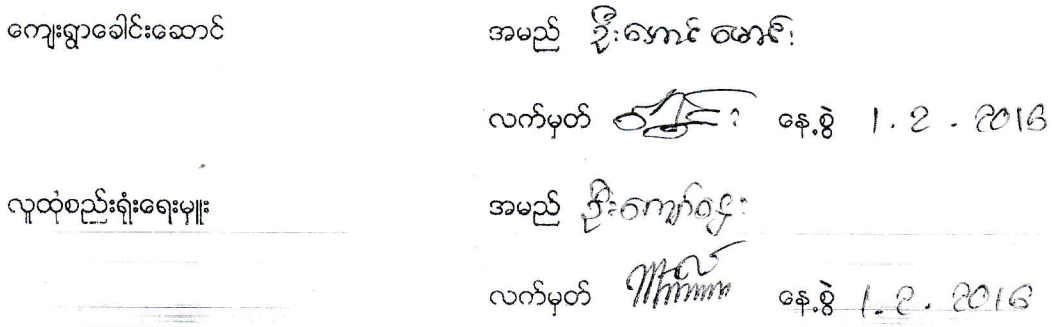 ကျေးရွာခေါင်းဆောင် အမည် ဦးအောင်မောင်း
လက်မှတ် နေ့စွဲ 1.2.2016
လူထုစည်းရုံးရေးမှူး အမည် ဦးကျော်ဌေး
လက်မှတ် နေ့စွဲ 1.2.2016